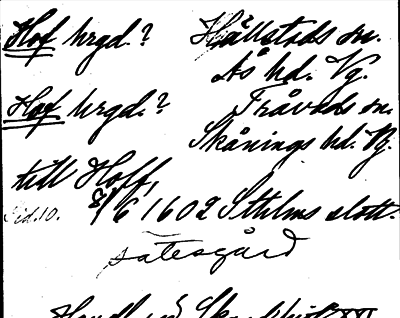 Hof hrgd.? Hällstads sn.
Ås hd. Vg.
Hof hrgd.? Tråvads sn.
Skånings hd. Vg.
till Hoff,
Sid. 10. 8/6 1602 Sthlms slott.
sätesgård